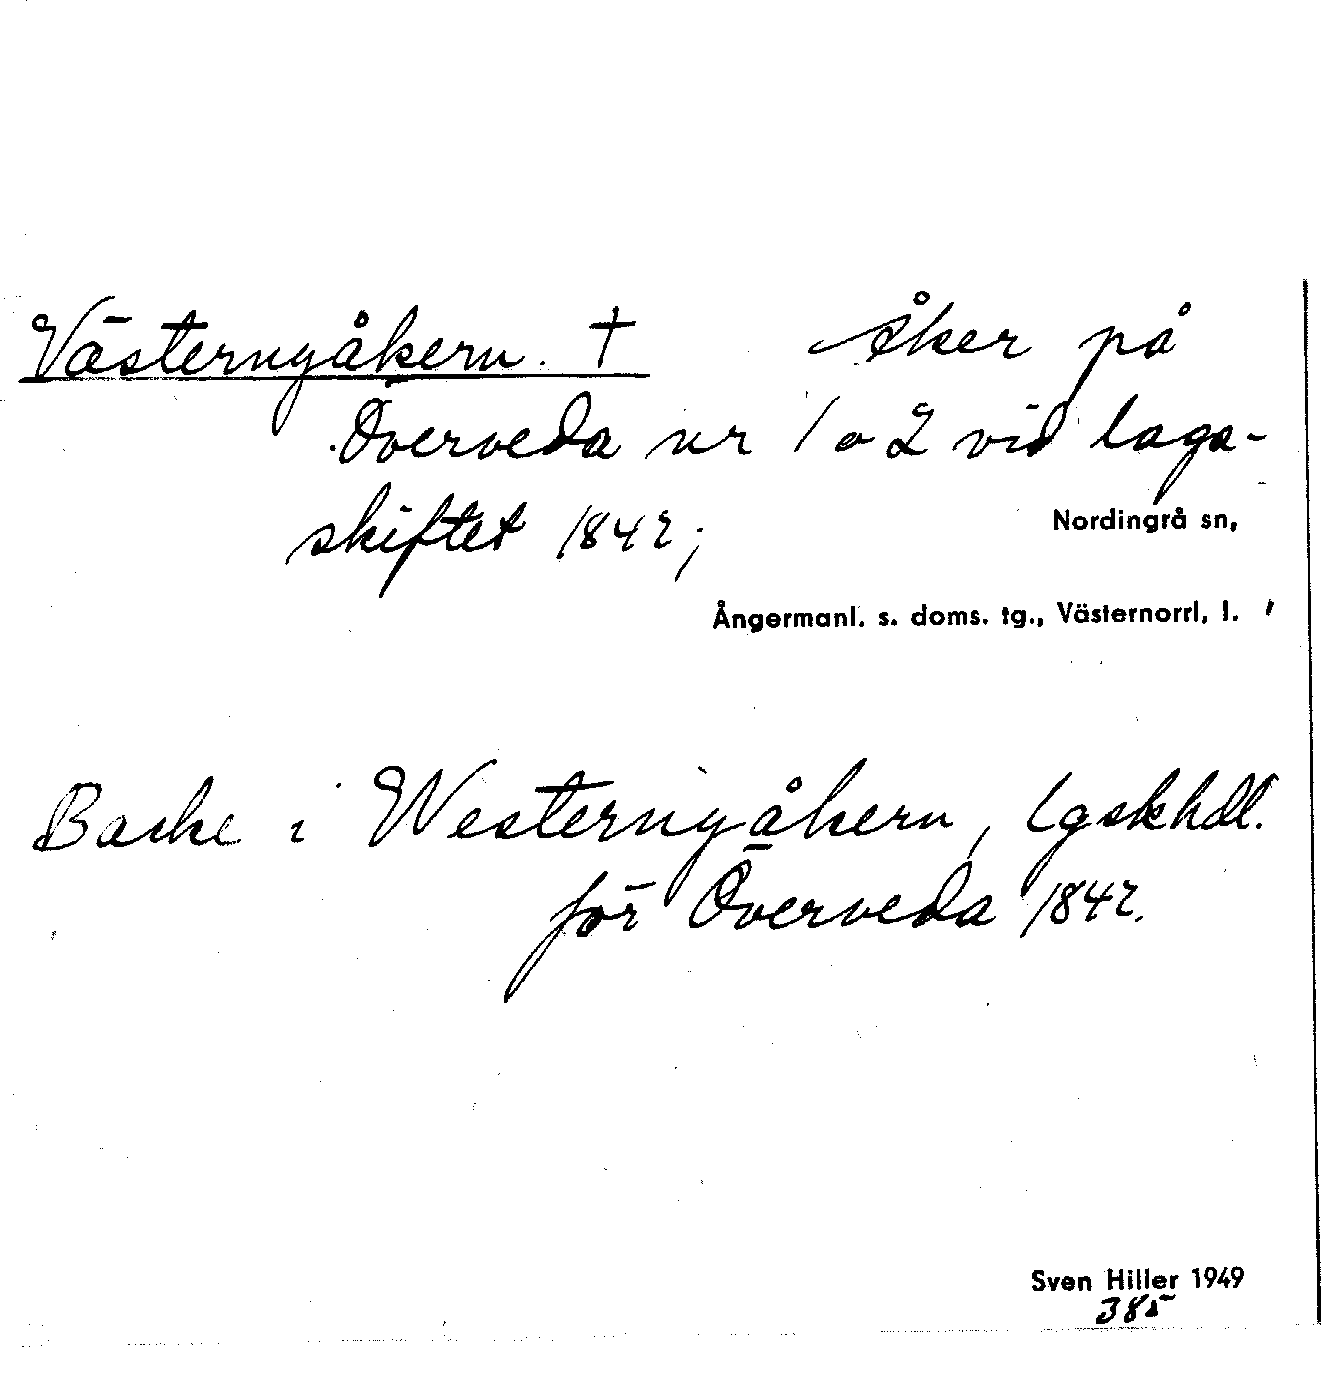 Västernyåkern. † åker på
Överveda nr 1 o 2 vid laga-
skiftet 1842;
Nordingrå sn,
Ångermanl. s. doms. tg., Västernorrl, l.
Backe i Westernyåkern, Lgskhdl.
för Överveda 1842.
Sven Hiller 1949
385